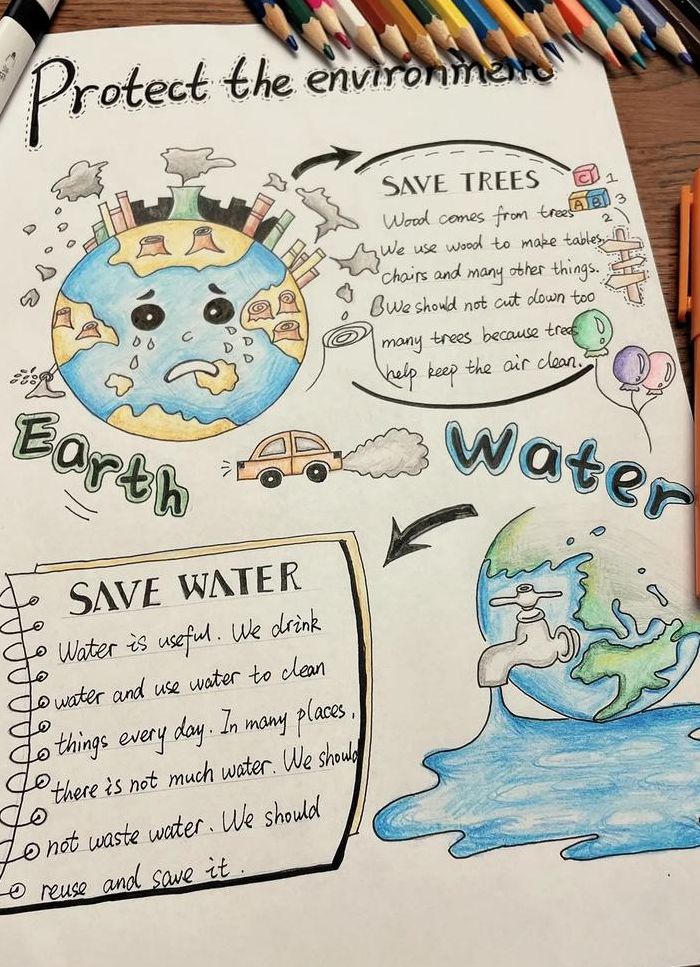 Protect the environment
SAVE TREES
Wood comes from trees
We use wood to make tables,
chairs and many other things.
We should not cut down too
many trees because trees
help keep the air clean.
C 1
A B 3
2
Earth
Water
SAVE WATER
Water is useful. We drink
water and use water to clean
things every day. In many places,
there is not much water. We should
not waste water. We should
reuse and save it.